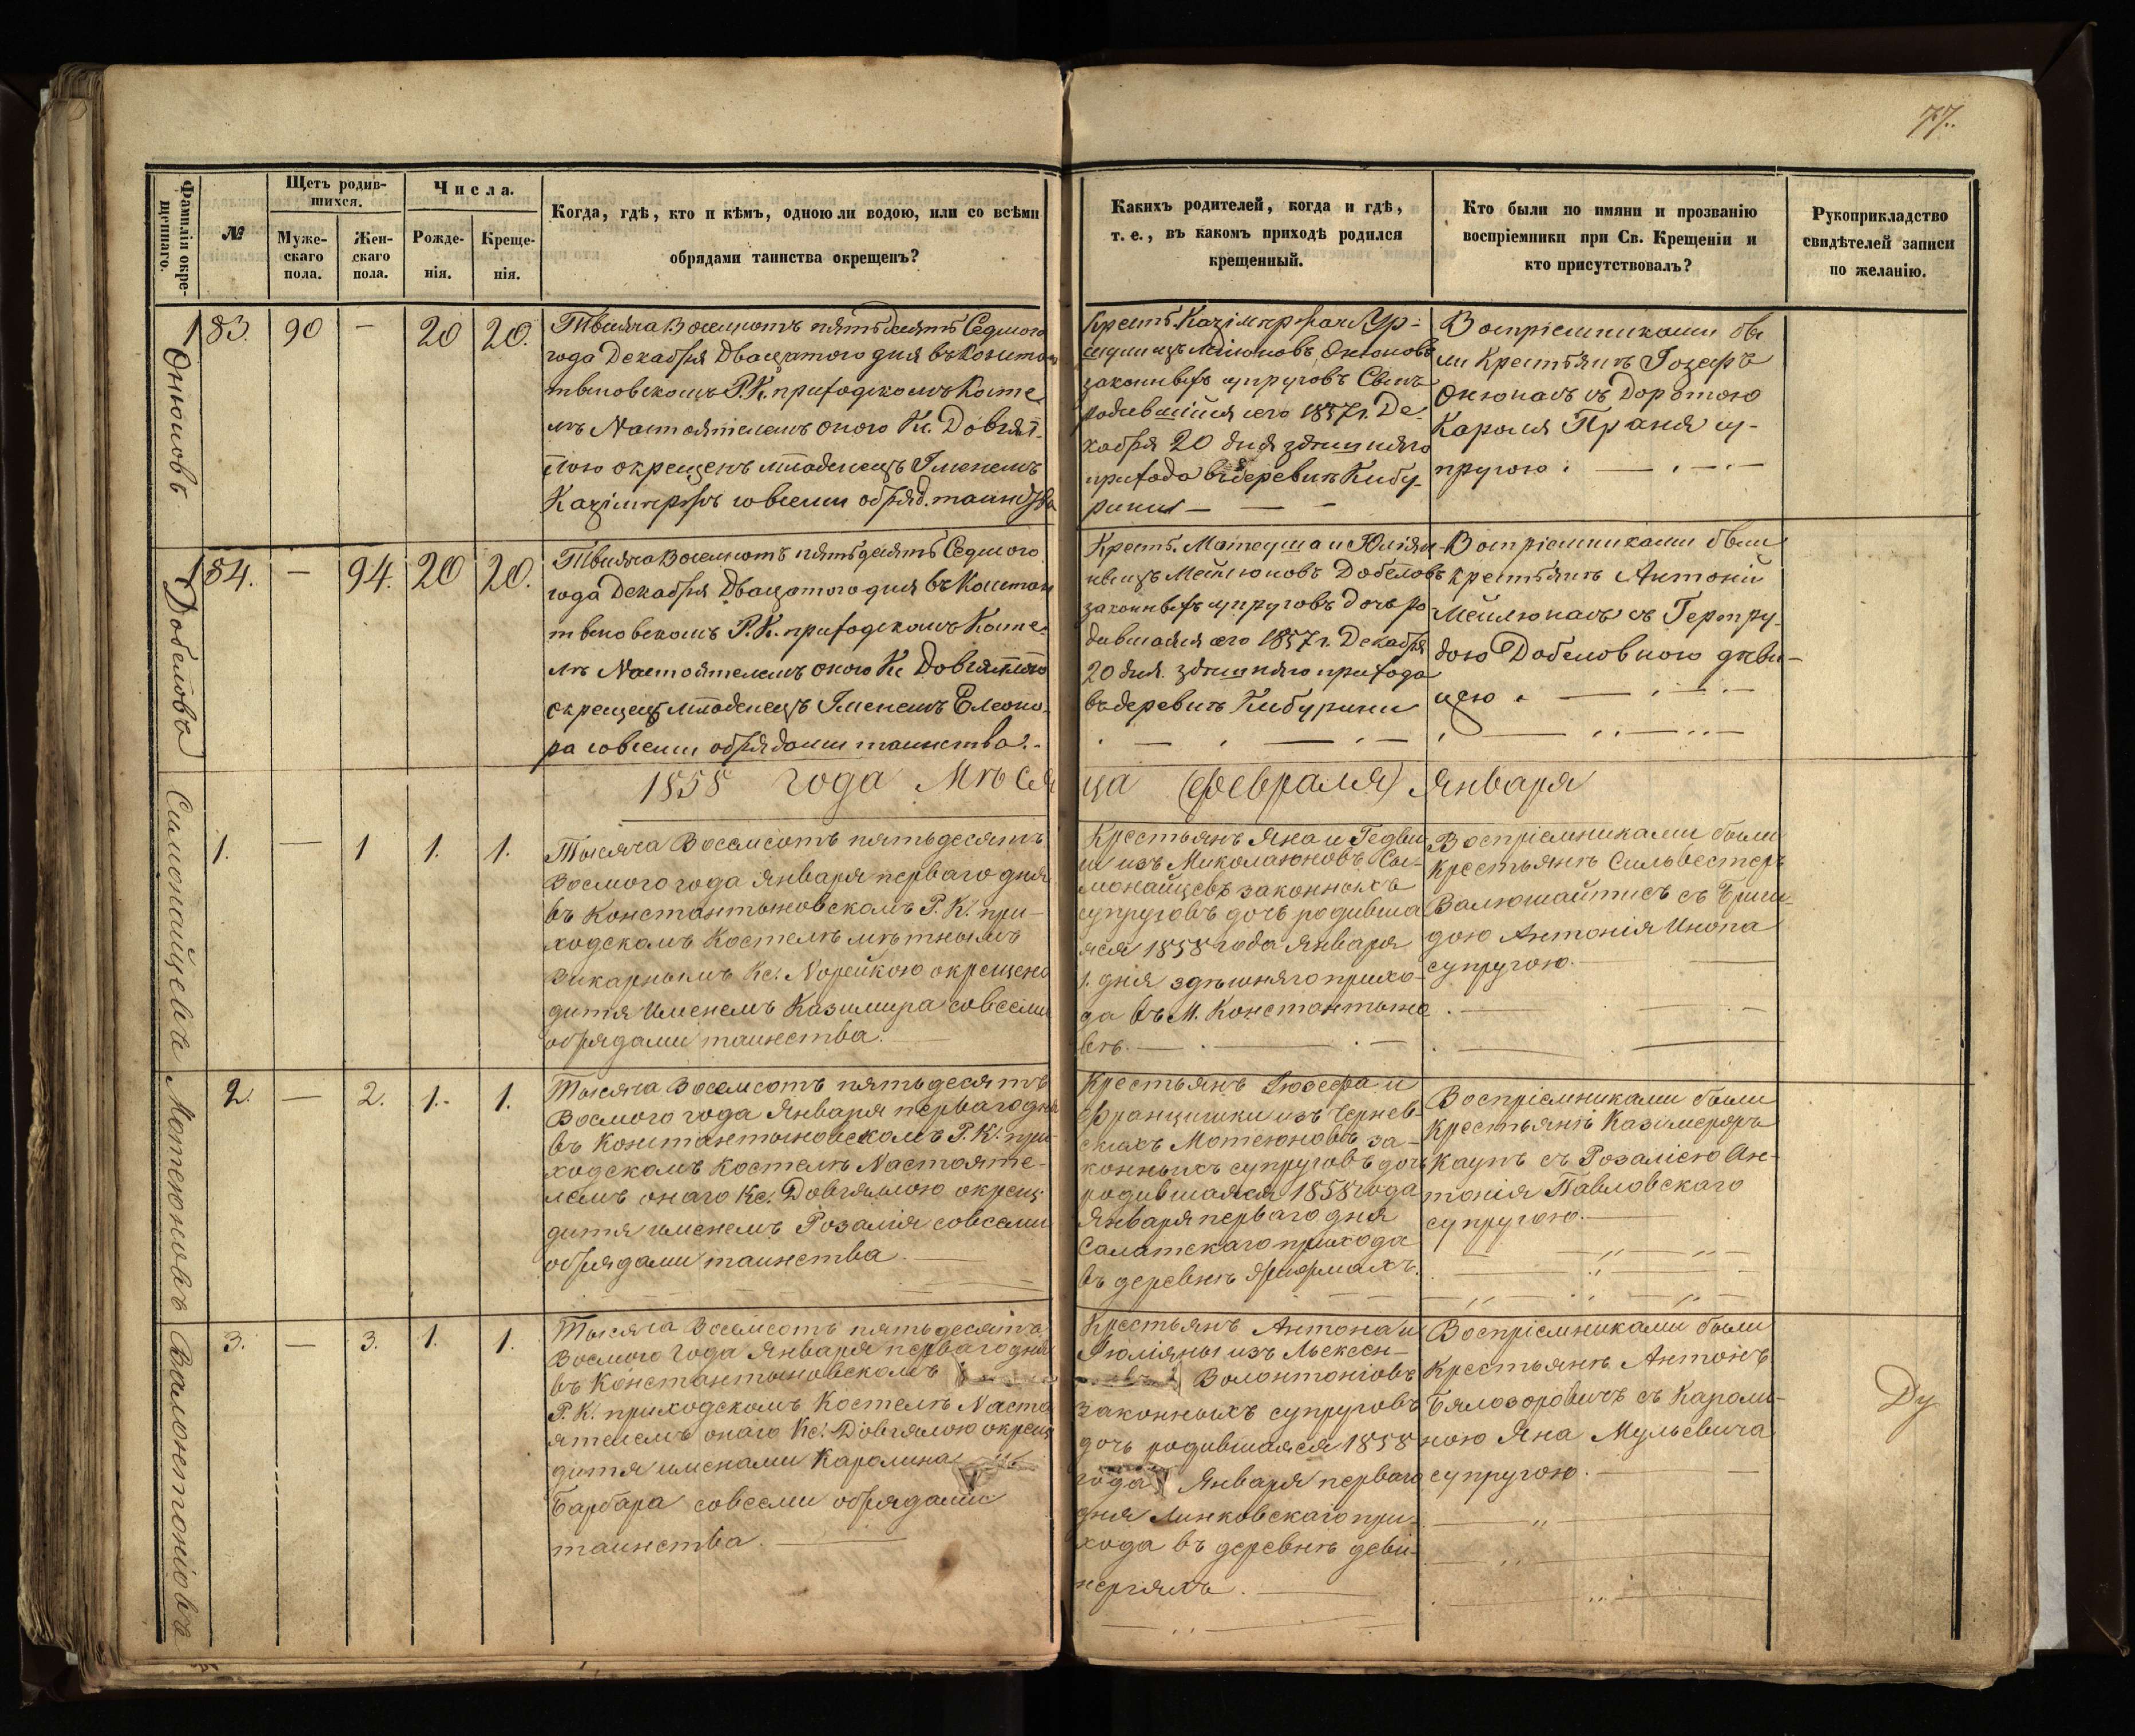 77.
Фамиліи окре-
щеннаго.
№
Щетъ родив-
шихся.
Муже-
скаго
пола.
Жен-
скаго
пола.
Числа.
Рожде-
нія.
Креще-
нія.
Когда, гдѣ, кто и кѣмъ, одною ли водою, или со всѣми
обрядами таинства окрещенъ?
Какихъ родителей, когда и гдѣ,
т. е., въ какомъ приходѣ родился
крещенный.
Кто были по имяни и прозванію
воспріемники при Св. Крещеніи и
кто присутствовалъ?
Рукоприкладство
свидѣтелей записи
по желанію.
Онюновъ
183. 90 — 20 20.
Тысяча Восемсотъ пятьдесятъ Седмого
года Декабря Двацатого дня въ Констан
тыновскомъ Р. К. приходскомъ Косте
лѣ Настоятелемъ оного Кс. Довгял-
лою окрещенъ младенецъ Именемъ
Казімиръ со всеми обряд. таинства
родившійся сего 1857 г. Де-
кабря 20 дня здешняго
прихода въ деревнѣ Кибу-
рини — — —
Воспріемниками бы
ли Крестьянъ Іозефъ
Онюнасъ съ Доротою
Кароля Праня су-
пругою. — . — . —
Добеловъ
184. — 94. 20 20.
Тысяча Восемсотъ пятьдесятъ Седмого
года Декабря Двацатого дня въ Констан
тыновскомъ Р. К. приходскомъ Косте-
лѣ Настоятелемъ оного Кс Довгяллою
окрещенъ Младенецъ Именемъ Елеоно-
ра со всеми обрядами таинства. -
Крест. Матеуша и Юліян-
ны изъ Мейлюновъ Добеловъ
законныхъ супруговъ дочь ро
дившаяся сего 1857 г. Декабря
20 дня. здешняго прихода
въ деревнѣ Кибурини
Воспріемниками были
крестьянъ Антоній
Мейлюнасъ съ Гертру-
дою Добеловною дѣви-
цею . — . — . —
1858 года Мѣся
ца (Февраля) Января
1. — 1 1. 1.
Тысяча Восемсотъ пятьдесятъ
Восмого года Января перваго дня
въ Константыновскомъ Р. К. при-
ходскомъ Костелѣ мѣстнымъ
Викарнымъ Кс. Норейкою окрещено
дитя Именемъ Казимира совсеми
обрядами таинства. —
Крестьянъ Яна и Гедви
ги изъ Миколаюновъ Си-
монайцевъ законныхъ
супруговъ дочь родивша
яся 1858 года Января
1. дня здѣшняго прихо-
да въ М. Константыно
вѣ. — . — . —
Воспріемниками были
Крестьянъ Сильвестеръ
Валюшайтисъ съ Бриги-
дою Антонія Инопа
супругою. — —
Матеюновъ
2. — 2. 1. - 1.
Тысяча Восемсотъ пятьдесятъ
Восмого года Января перваго дня
въ Константыновскомъ Р. К. при-
ходскомъ Костелѣ Настояте-
лемъ онаго Кс. Довгяллою окрещ.
дитя именемъ Розалія совсеми
обрядами таинства. —
Крестьянъ Іюзефа и
Францишки изъ Чернев-
скихъ Матеюновъ за-
конныхъ супруговъ дочь
родившаяся 1858 года
Января перваго дня
Салатскаго прихода
Воспріемниками были
Крестьянъ Казімеръ
Каунъ съ Розаліею Ан-
тонія Павловскаго
супругою. —
Валонтоніовъ
3. — 3. 1. 1.
Тысяча Восемсотъ пятьдесятъ
Восмого Года Января перваго дня
въ Константыновскомъ
Р. К. приходскомъ Костелѣ Насто
ятелемъ онаго Кс. Довгялою окрещ
дитя именами Каролина
Барбара совсеми обрядами
таинства. —
Крестьянъ Антона и
Юліяны изъ Лексен-
Волонтоніовъ
законныхъ супруговъ
дочь родившаяся 1858
года Января перваго
дня Линковскаго при-
хода въ деревнѣ Деви-
нергяхъ. —
Воспріемниками были
Крестьянъ Антонъ
Бялозоровичъ съ Кароли-
ною Яна Мульевича
супругою. — —
Ду